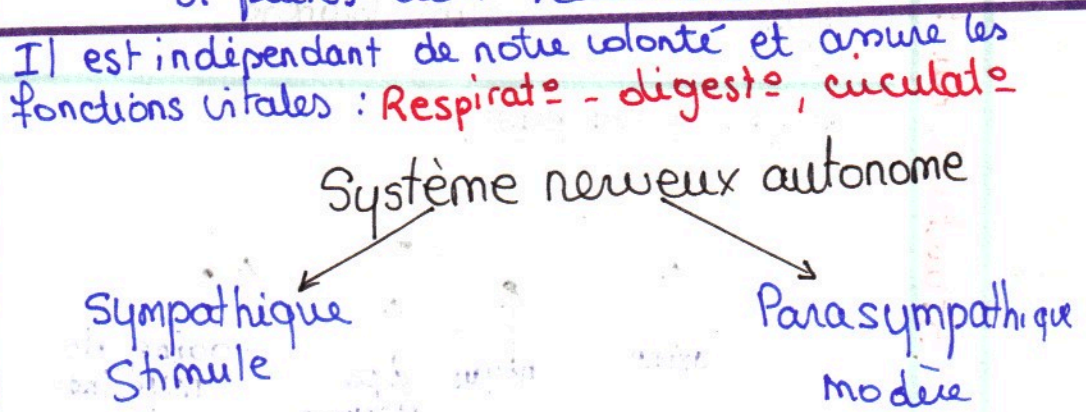 Il est indépendant de notre volonté et assure les
fonctions vitales : Respirat° - digest°, circulat°
Système nerveux autonome
Sympathique Parasympathique
Stimule modère